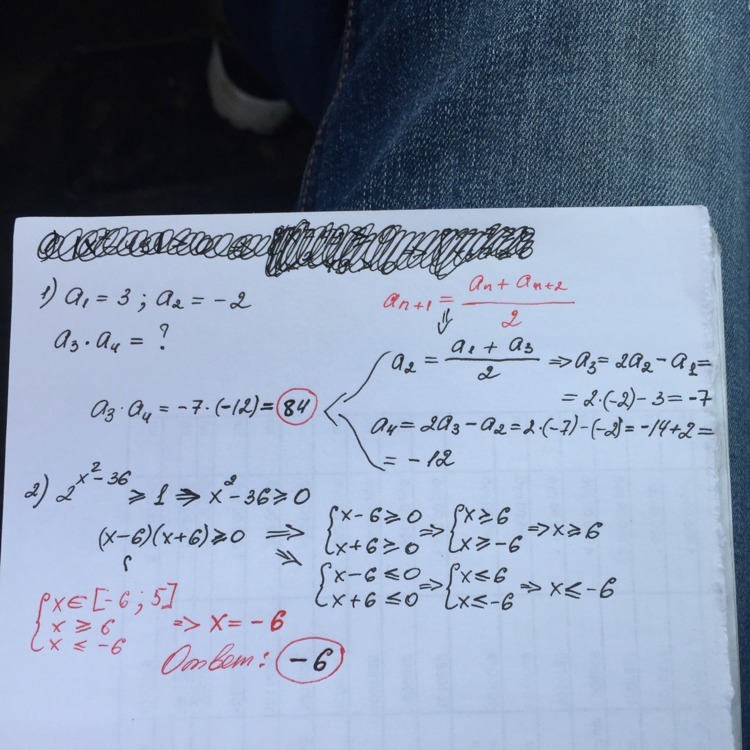 1) a₁ = 3 ; a₂ = -2
aₙ₊₁ = (aₙ + aₙ₊₂)/2
a₃ · a₄ = ?
⇓
a₂ = (a₁ + a₃)/2 ⇒ a₃ = 2a₂ - a₁ =
= 2·(-2) - 3 = -7
a₃ · a₄ = -7 · (-12) = 84
a₄ = 2a₃ - a₂ = 2·(-7) - (-2) = -14 + 2 =
= -12
2) 2^(x²-36) ≥ 1 ⇒ x² - 36 ≥ 0
(x-6)(x+6) ≥ 0 ⇒ { x - 6 ≥ 0 x + 6 ≥ 0 ⇒ { x ≥ 6 x ≥ -6 ⇒ x ≥ 6
⇒ { x - 6 ≤ 0 x + 6 ≤ 0 ⇒ { x ≤ 6 x ≤ -6 ⇒ x ≤ -6
{ x ∈ [-6 ; 5]
x ≥ 6 ⇒ x = -6
x ≤ -6
Ответ: -6